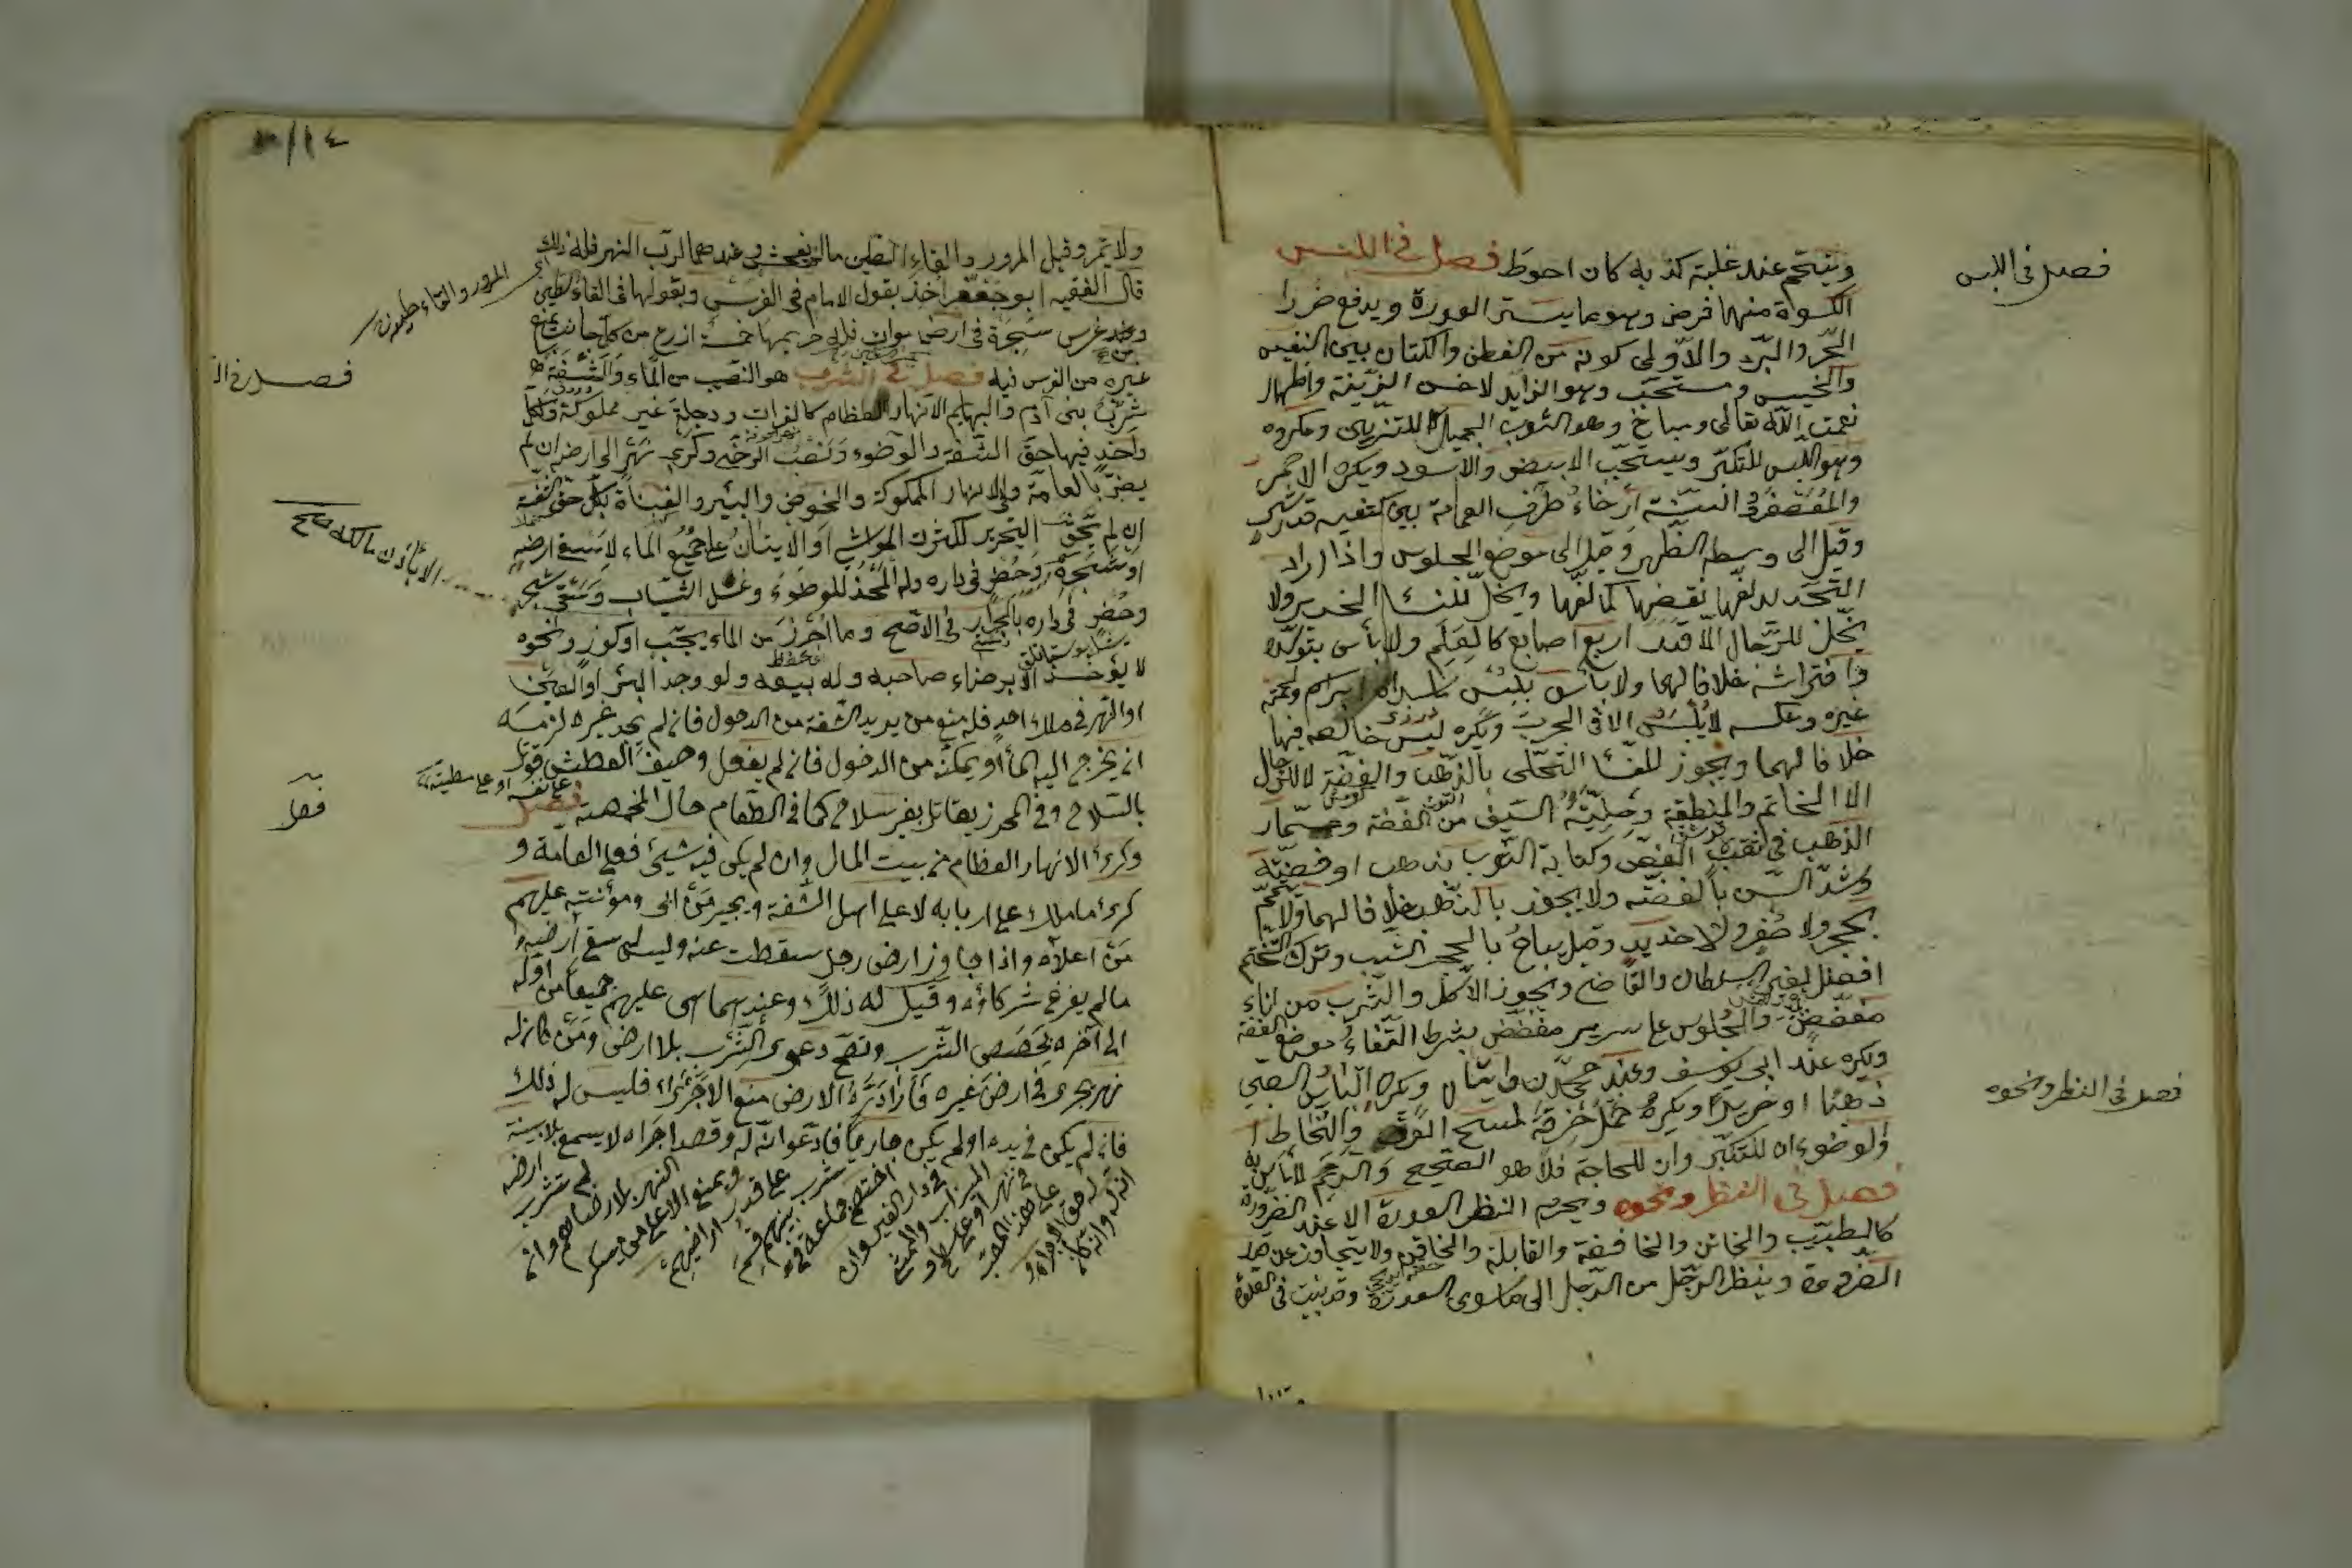 فصل في اللبس
وينتحم عند غلبة كذبه كان احوط فصل في اللبس
الكسوة منها فرض وهو ما يستر العورة ويدفع ضرر
الحر والبرد والاولى كونه من القطن والكتان بين النفيس
والخسيس ومستحب وهو الزايد لاخذ الزينة واظهار
نعمت الله تعالى ومباح وهو الثوب الجميل للتزيين ومكروه
وهو اللبس للتكبر ويستحب الابيض والاسود ويكره الاحمر
والمعصفر والسنة ارخاء طرف العمامة بين كتفيه قدر شبر
وقيل الى وسط الظهر وقيل الى موضع الجلوس واذا اراد
التجديد لفها نقضها كما لفها ويحل للنساء الحرير ولا
يحل للرجال الا قدر اربع اصابع كالعلم ولا بأس بتوسده
وافتراشه خلافا لهما ولا بأس بلبس ما سداه ابريسم ولحمته
غيره وعكسه لا يلبس الا في الحرب ويكره لبس خالصه فيها
خلافا لهما ويجوز للنساء التحلي بالذهب والفضة لا للرجال
الا الخاتم والمنطقة وحلية السيف من الفضة ومسمار
الذهب في ثقب الفص وكتابة الثوب بذهب او فضة
وشد السن بالفضة ولا يجوز بالذهب خلافا لهما ولا يتختم
بحجر ولا صفر ولا حديد وقيل يباح بالحجر اليشب وترك التختم
افضل لغير السلطان والقاضي ويجوز الاكل والشرب من اناء
مفضض والجلوس على سرير مفضض بشرط اتقاء موضع الفضة
ويكره عند ابي يوسف وعند محمد روايتان ويكره الباس الصبي
ذهبا او حريرا ويكره حمل خرقة لمسح العرق والمخاط
او لوضوء ان للتكبر وان للحاجة فلا هو الصحيح والرتم لا بأس به
فصل في النظر ونحوه ويحرم النظر الى العورة الا عند الضرورة
كالطبيب والخاتن والخافضة والقابلة والحاقن ولا يتجاوز عن قدر
الضرورة وينظر الرجل من الرجل الى ما سوى العورة وقد بينت في الصلوة
فصل في النظر ونحوه
ولا ثمر وقيل المرور والقاء الطين ما لم يفحش وعندهما لرب النهر فله ذلك
قال الفقيه ابو جعفر اخذ بقول الامام في الغرس وبقولهما في القاء الطين
ومن غرس شجرة في ارض موات فله حريمها خمسة اذرع من كل جانب يمنع
غيره من الغرس فيه فصل في الشرب هو النصيب من الماء والشفة
شرب بني آدم والبهايم الانهار العظام كالفرات ودجلة غير مملوكة ولكل
واحد فيها حق الشفة والوضوء ونصب الرحى وكري نهر الى ارضه ان لم
يضر بالعامة وفي الانهار المملوكة والحوض والبئر والقناة لكل حق الشفة
ان لم يخف التخريب لكثرة المواشي او الاتيان على جميع الماء لا سقي ارضه
او شجره وله الاخذ للوضوء وغسل الثياب وسقي شجر
وخضر في داره بالجرار في الاصح وما احرز من الماء بحب او كوز ونحوه
لا يؤخذ الا برضاء صاحبه وله بيعه ولو وجد البئر او العين
او النهر في ملك احد فله منع من يريد الشفة من الدخول فان لم يجد غيره لزمه
ان يخرج اليه الماء او يمكنه من الدخول فان لم يفعل وخيف العطش قوتل
بالسلاح وفي المحرز يقاتل بغير سلاح كما في الطعام حال المخمصة فصل
وكري الانهار العظام من بيت المال وان لم يكن فيه شيء فعلى العامة و
كري ما ملك على اربابه لا على اهل الشفة ويجبر من ابى ومؤنته عليهم
من اعلاه واذا جاوز ارض رجل سقطت عنه وليس له سقي ارضه
ما لم يفرغ شركاؤه وقيل له ذلك وعندهما هي عليهم جميعا من اوله
الى آخره بحصص الشرب وتصح دعوى الشرب بلا ارض ومن كان له
نهر يجري في ارض غيره فاراد رب الارض منع الاجراء فليس له ذلك
فان لم يكن في يده او لم يكن جاريا فادعى انه له وقصد اجراه لا يسمع بلا بينة
انه له وانه كان
له حق الاجراء و
على هذا المصب
في نهر او على سطح و
الميزاب والممشى
في دار الغير وان
اختصم جماعة في
شرب بينهم قسم
على قدر اراضيهم
ويمنع الاعلى من سكر
النهر بلا رضاهم وان
لم تشرب
ارضه
المرور والقاء طينه
على نفسه او على مطيته
فصل
١٤